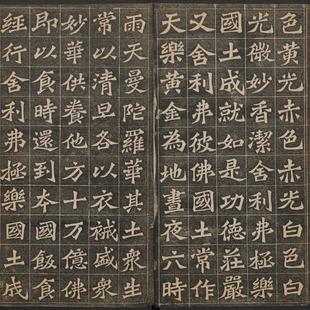 色黄光赤色赤光白色白
光微妙香潔舍利弗極樂
國土成就如是功德莊嚴
又舍利弗彼佛國土常作
天樂黄金為地晝夜六時
雨天曼陀羅華其土衆生
常以清旦各以衣裓盛衆
妙華供養他方十万億佛
即以食時還到夲國飯食
經行舍利弗極樂國土成